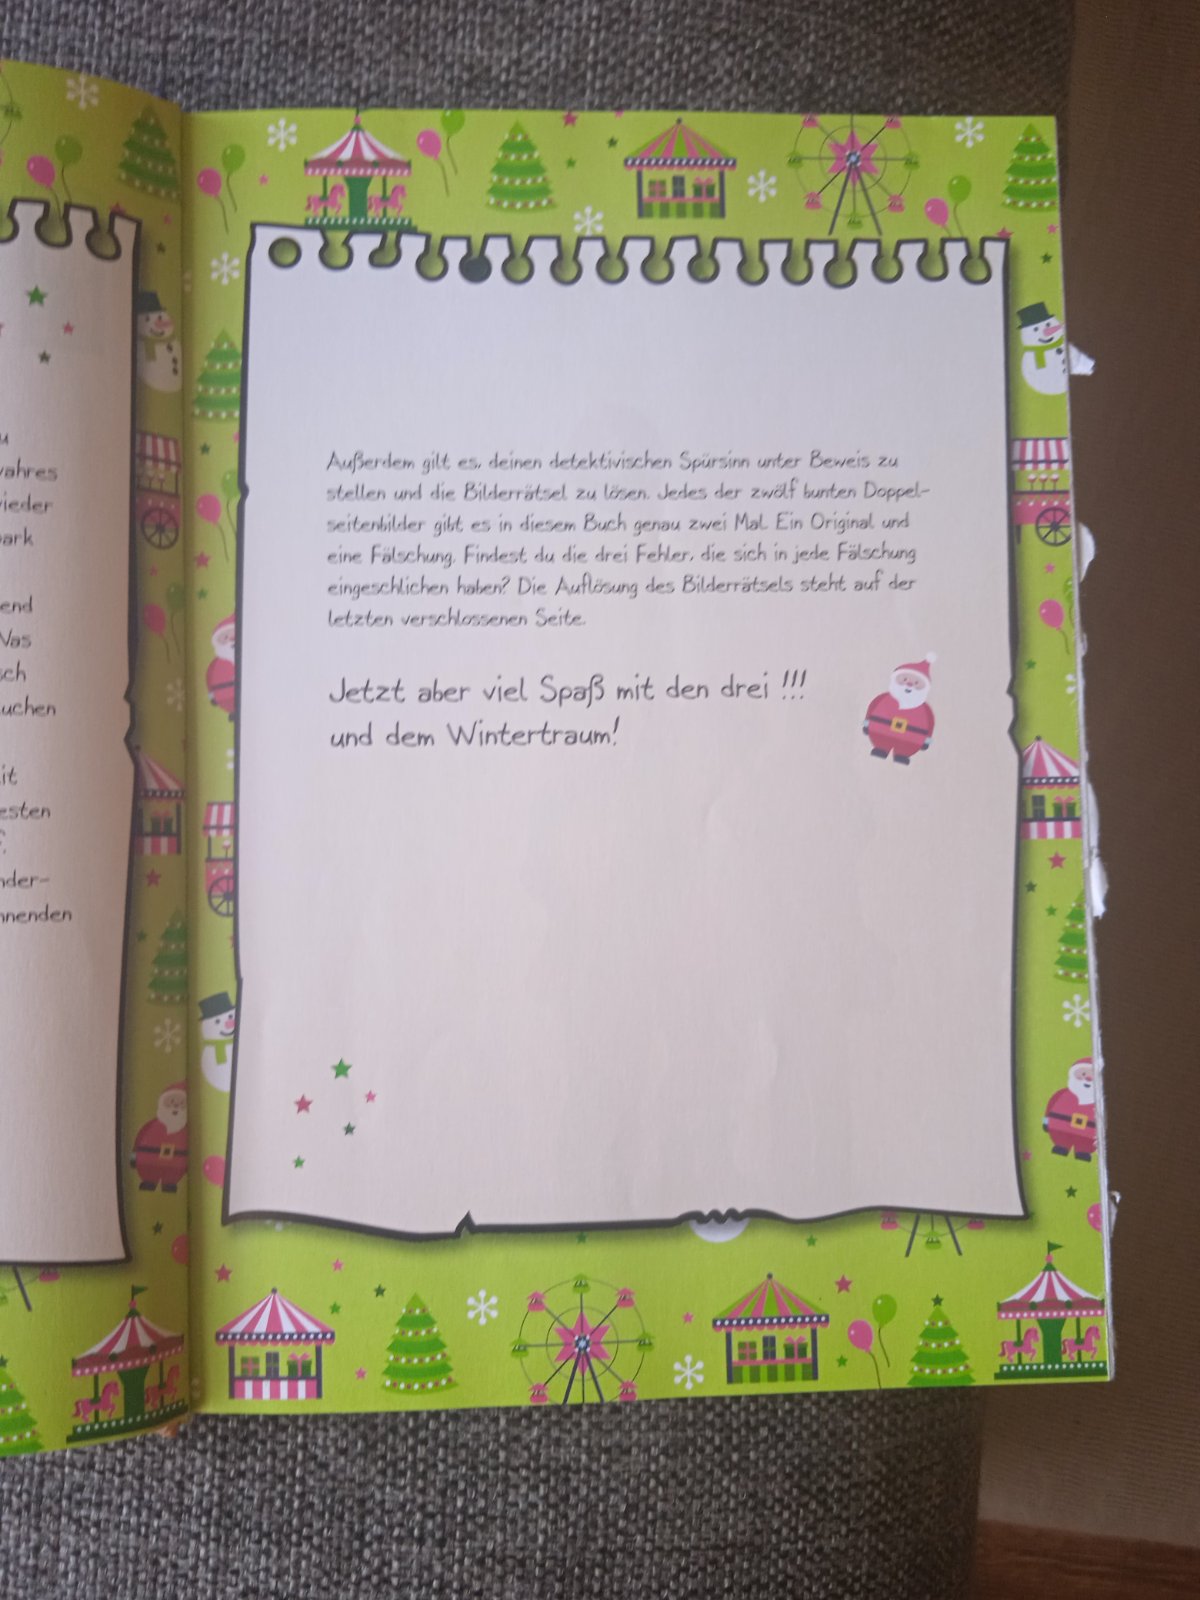 u
wahres
wieder
park
end
Was
sch
uchen
it
esten
f.
nder-
nnenden
Außerdem gilt es, deinen detektivischen Spürsinn unter Beweis zu
stellen und die Bilderrätsel zu lösen. Jedes der zwölf bunten Doppel-
seitenbilder gibt es in diesem Buch genau zwei Mal. Ein Original und
eine Fälschung. Findest du die drei Fehler, die sich in jede Fälschung
eingeschlichen haben? Die Auflösung des Bilderrätsels steht auf der
letzten verschlossenen Seite.
Jetzt aber viel Spaß mit den drei !!!
und dem Wintertraum!